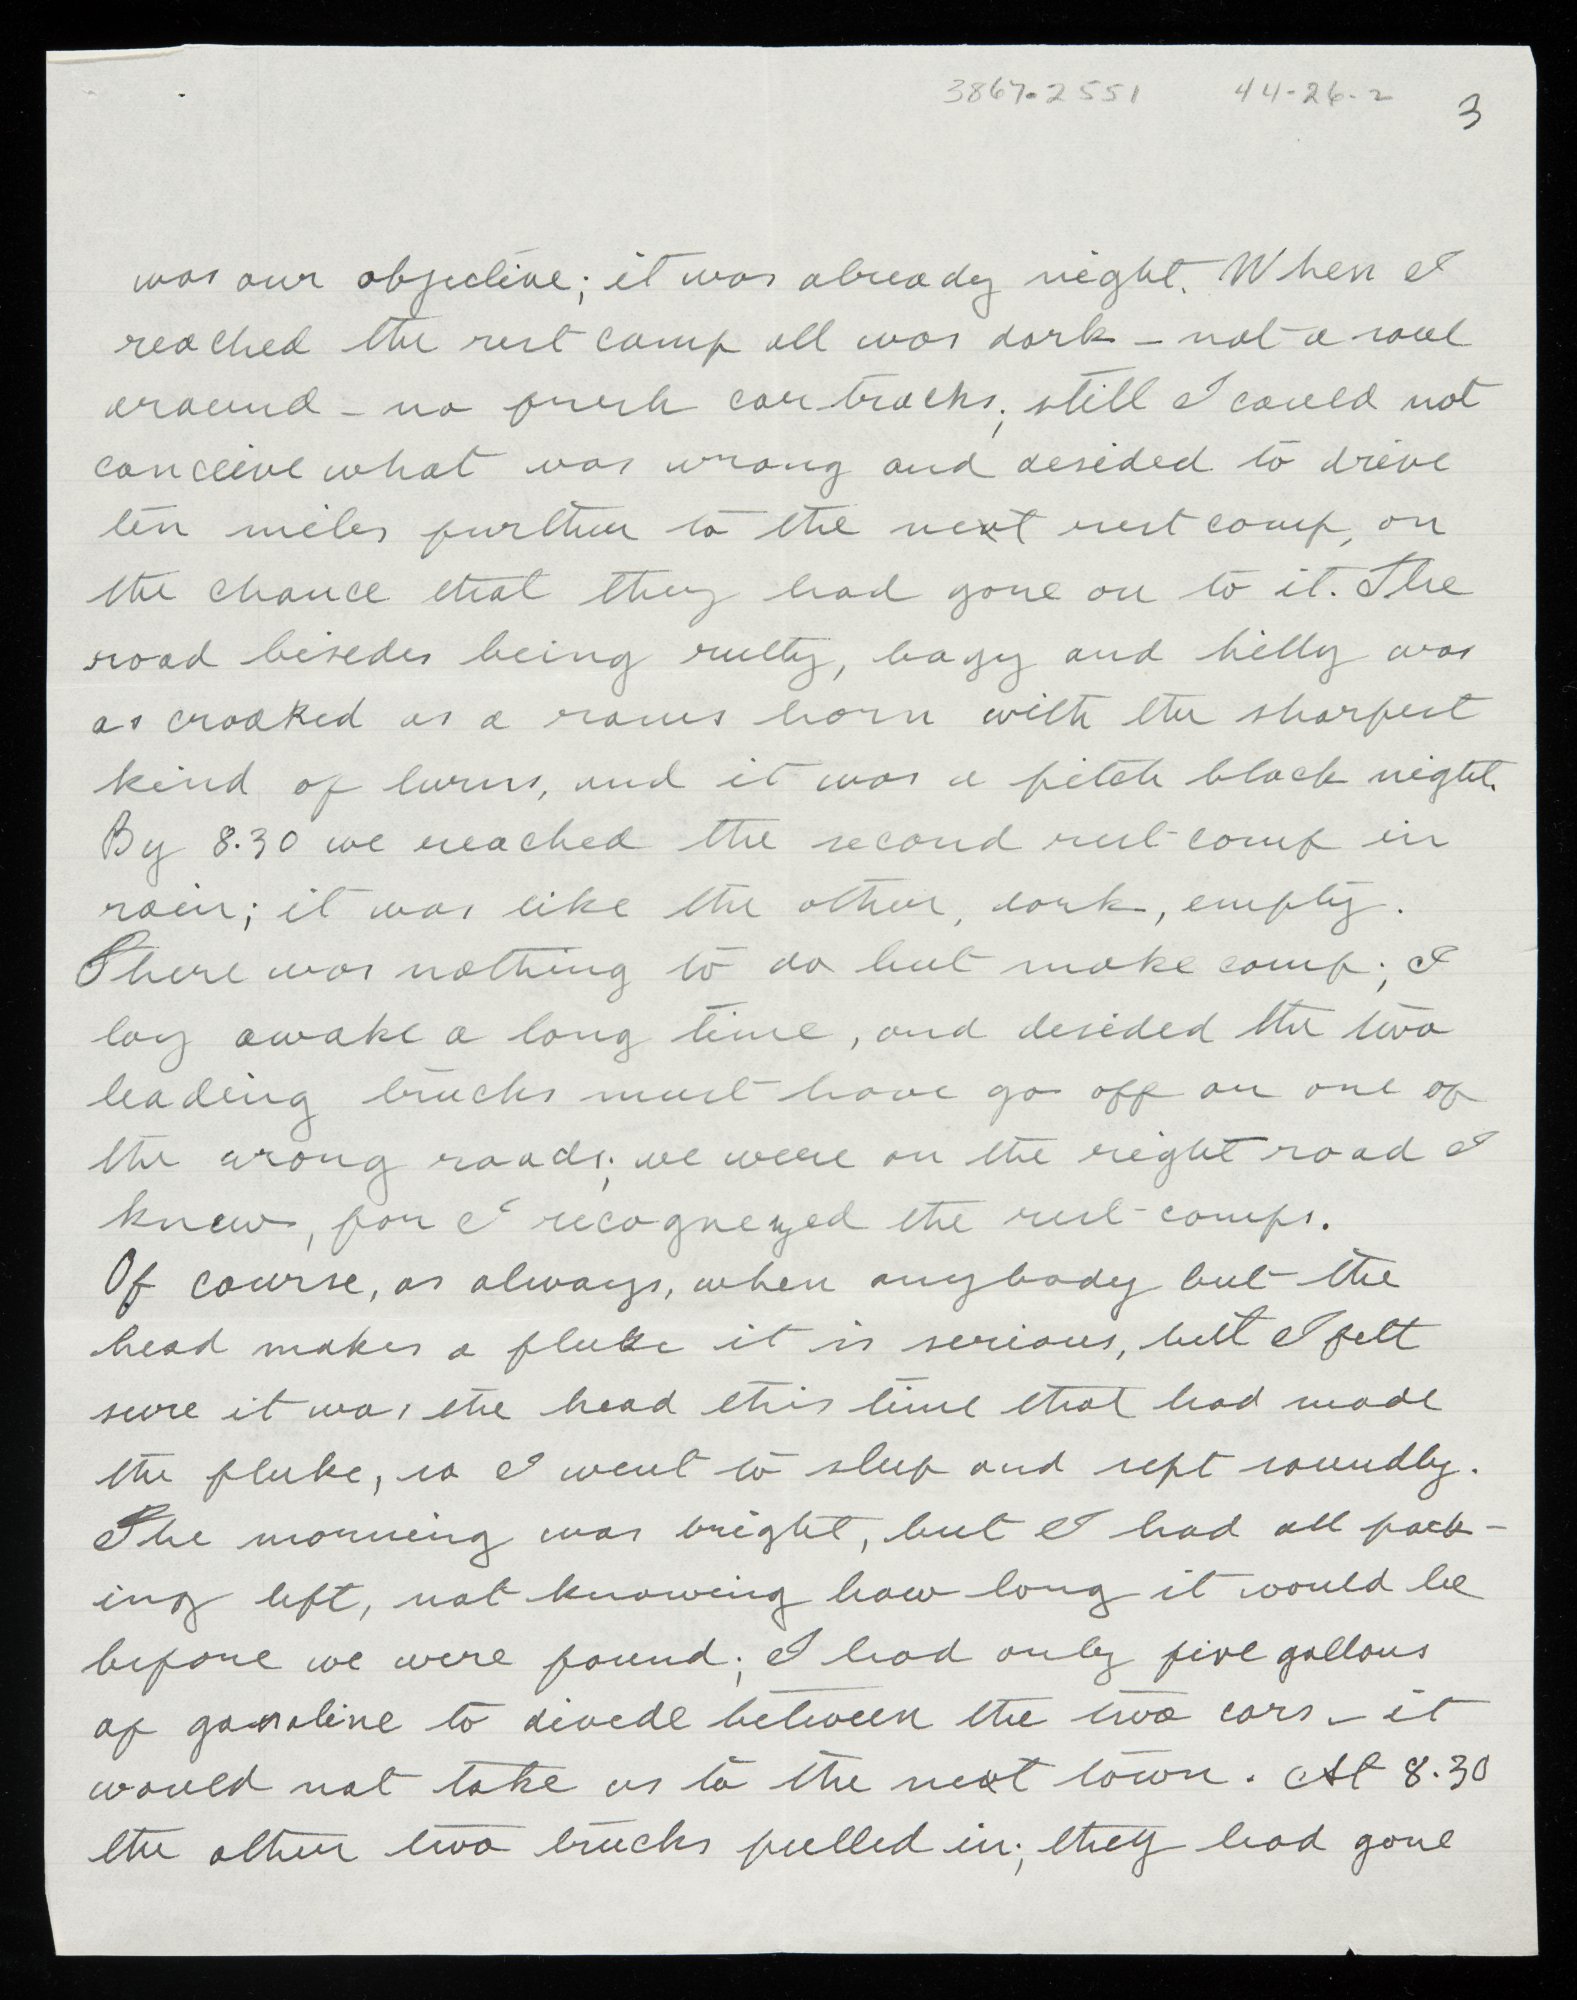 3867.2551 44-26-2 3
was our objective; it was already night. When I
reached the rest camp all was dark – not a soul
around – no fresh car tracks; still I could not
conceive what was wrong and desided to drive
ten miles further to the next rest camp, on
the chance that they had gone on to it. The
road besides being rutty, bogy and hilly was
as crooked as a rams horn with the sharpest
kind of turns, and it was a pitch black night.
By 8.30 we reached the second rest-camp in
rain; it was like the other, dark, empty.
There was nothing to do but make camp; I
lay awake a long time, and desided the two
leading trucks must have go off on one of
the wrong roads; we were on the right road I
knew, for I recognezed the rest-camps.
Of course, as always, when anybody but the
head makes a fluke it is serious, but I felt
sure it was the head this time that had made
the fluke, so I went to sleep and sept soundly.
The morning was bright, but I had all pack-
ing left, not knowing how long it would be
before we were found; I had only five gallons
of gasoline to divide between the two cars – it
would not take us to the next town. At 8.30
the other two trucks pulled in; they had gone